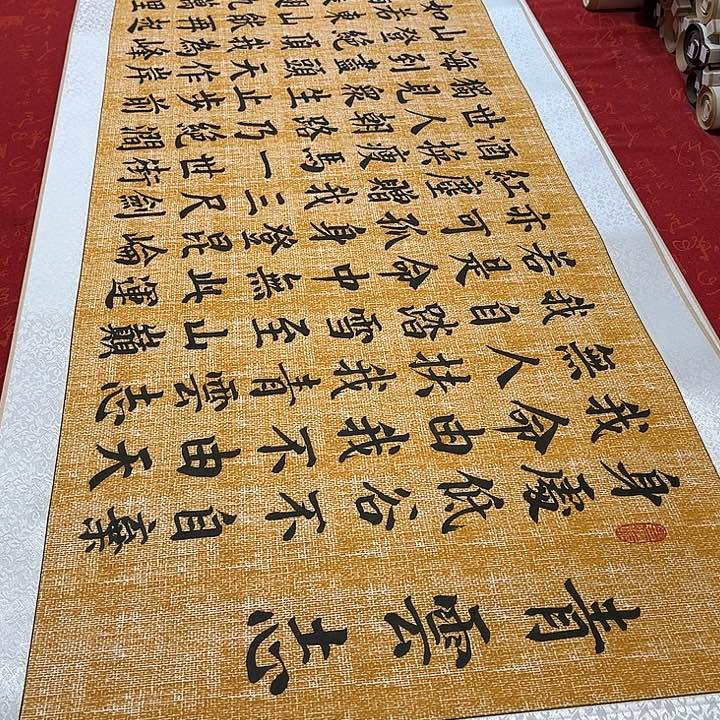 青雲志
身處低谷不自棄
我命由我不由天
無人扶我青雲志
我自踏雪至山巔
若是命中無此運
亦可孤身登昆崘
紅塵贈我三尺劍
酒換瘦馬一世街
世人朝路乃絕澗
獨見眾生止步前
海到盡頭天作岸
山登絕頂我為峰
如若東山再起